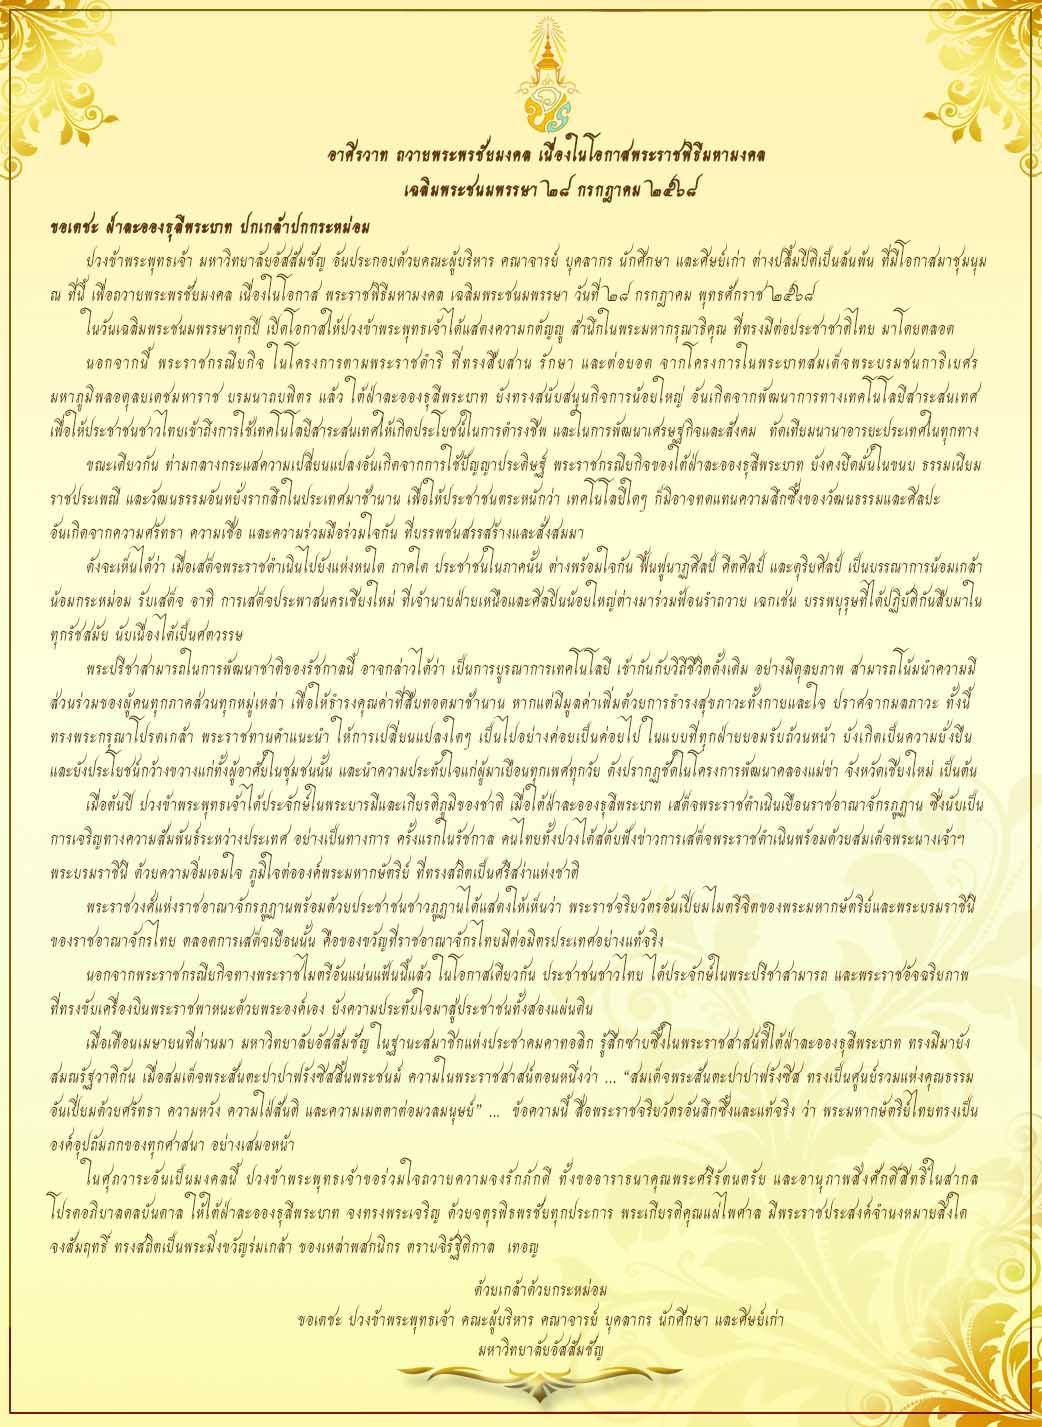 อาศิรวาท ถวายพระพรชัยมงคล เนื่องในโอกาสพระราชพิธีมหามงคล
เฉลิมพระชนมพรรษา ๒๘ กรกฎาคม ๒๕๖๘
ขอเดชะ ฝ่าละอองธุลีพระบาท ปกเกล้าปกกระหม่อม
ปวงข้าพระพุทธเจ้า มหาวิทยาลัยอัสสัมชัญ อันประกอบด้วยคณะผู้บริหาร คณาจารย์ บุคลากร นักศึกษา และศิษย์เก่า ต่างปลื้มปีติเป็นล้นพ้น ที่มีโอกาสมาชุมนุม
ณ ที่นี้ เพื่อถวายพระพรชัยมงคล เนื่องในโอกาส พระราชพิธีมหามงคล เฉลิมพระชนมพรรษา วันที่ ๒๘ กรกฎาคม พุทธศักราช ๒๕๖๘
ในวันเฉลิมพระชนมพรรษาทุกปี เปิดโอกาสให้ปวงข้าพระพุทธเจ้าได้แสดงความกตัญญู สำนึกในพระมหากรุณาธิคุณ ที่ทรงมีต่อประชาชาติไทย มาโดยตลอด
นอกจากนี้ พระราชกรณียกิจ ในโครงการตามพระราชดำริ ที่ทรงสืบสาน รักษา และต่อยอด จากโครงการในพระบาทสมเด็จพระบรมชนกาธิเบศร
มหาภูมิพลอดุลยเดชมหาราช บรมนาถบพิตร แล้ว ใต้ฝ่าละอองธุลีพระบาท ยังทรงสนับสนุนกิจการน้อยใหญ่ อันเกิดจากพัฒนาการทางเทคโนโลยีสาระสนเทศ
เพื่อให้ประชาชนชาวไทยเข้าถึงการใช้เทคโนโลยีสาระสนเทศให้เกิดประโยชน์ในการดำรงชีพ และในการพัฒนาเศรษฐกิจและสังคม ทัดเทียมนานาอารยะประเทศในทุกทาง
ขณะเดียวกัน ท่ามกลางกระแสความเปลี่ยนแปลงอันเกิดจากการใช้ปัญญาประดิษฐ์ พระราชกรณียกิจของใต้ฝ่าละอองธุลีพระบาท ยังคงยึดมั่นในขนบ ธรรมเนียม
ราชประเพณี และวัฒนธรรมอันหยั่งรากลึกในประเทศมาช้านาน เพื่อให้ประชาชนตระหนักว่า เทคโนโลยีใดๆ ก็มิอาจทดแทนความลึกซึ้งของวัฒนธรรมและศิลปะ
อันเกิดจากความศรัทธา ความเชื่อ และความร่วมมือร่วมใจกัน ที่บรรพชนสรรสร้างและสั่งสมมา
ดังจะเห็นได้ว่า เมื่อเสด็จพระราชดำเนินไปยังแห่งหนใด ภาคใด ประชาชนในภาคนั้น ต่างพร้อมใจกัน ฟื้นฟูนาฏศิลป์ คีตศิลป์ และดุริยศิลป์ เป็นบรรณาการน้อมเกล้า
น้อมกระหม่อม รับเสด็จ อาทิ การเสด็จประพาสนครเชียงใหม่ ที่เจ้านายฝ่ายเหนือและศิลปินน้อยใหญ่ต่างมาร่วมฟ้อนรำถวาย เฉกเช่น บรรพบุรุษที่ได้ปฏิบัติกันสืบมาใน
ทุกรัชสมัย นับเนื่องได้เป็นศตวรรษ
พระปรีชาสามารถในการพัฒนาชาติของรัชกาลนี้ อาจกล่าวได้ว่า เป็นการบูรณาการเทคโนโลยี เข้ากันกับวิถีชีวิตดั้งเดิม อย่างมีดุลยภาพ สามารถโน้มนำความมี
ส่วนร่วมของผู้คนทุกภาคส่วนทุกหมู่เหล่า เพื่อให้ธำรงคุณค่าที่สืบทอดมาช้านาน หากแต่มีมูลค่าเพิ่มด้วยการธำรงสุขภาวะทั้งกายและใจ ปราศจากมลภาวะ ทั้งนี้
ทรงพระกรุณาโปรดเกล้า พระราชทานคำแนะนำ ให้การเปลี่ยนแปลงใดๆ เป็นไปอย่างค่อยเป็นค่อยไป ในแบบที่ทุกฝ่ายยอมรับถ้วนหน้า ยังเกิดเป็นความยั่งยืน
และยังประโยชน์กว้างขวางแก่ทั้งผู้อาศัยในชุมชนนั้น และนำความประทับใจแก่ผู้มาเยือนทุกเพศทุกวัย ดังปรากฏชัดในโครงการพัฒนาคลองแม่ข่า จังหวัดเชียงใหม่ เป็นต้น
เมื่อต้นปี ปวงข้าพระพุทธเจ้าได้ประจักษ์ในพระบารมีและเกียรติภูมิของชาติ เมื่อใต้ฝ่าละอองธุลีพระบาท เสด็จพระราชดำเนินเยือนราชอาณาจักรภูฏาน ซึ่งนับเป็น
การเจริญทางความสัมพันธ์ระหว่างประเทศ อย่างเป็นทางการ ครั้งแรกในรัชกาล คนไทยทั้งปวงได้สดับฟังข่าวการเสด็จพระราชดำเนินพร้อมด้วยสมเด็จพระนางเจ้าฯ
พระบรมราชินี ด้วยความอิ่มเอมใจ ภูมิใจต่อองค์พระมหากษัตริย์ ที่ทรงสถิตเป็นศรีสง่าแห่งชาติ
พระราชวงศ์แห่งราชอาณาจักรภูฏานพร้อมด้วยประชาชนชาวภูฏานได้แสดงให้เห็นว่า พระราชจริยวัตรอันเปี่ยมไมตรีจิตของพระมหากษัตริย์และพระบรมราชินี
ของราชอาณาจักรไทย ตลอดการเสด็จเยือนนั้น คือของขวัญที่ราชอาณาจักรไทยมีต่อมิตรประเทศอย่างแท้จริง
นอกจากพระราชกรณียกิจทางพระราชไมตรีอันแน่นแฟ้นนี้แล้ว ในโอกาสเดียวกัน ประชาชนชาวไทย ได้ประจักษ์ในพระปรีชาสามารถ และพระราชอัจฉริยภาพ
ที่ทรงขับเครื่องบินพระราชพาหนะด้วยพระองค์เอง ยังความประทับใจมาสู่ประชาชนทั้งสองแผ่นดิน
เมื่อเดือนเมษายนที่ผ่านมา มหาวิทยาลัยอัสสัมชัญ ในฐานะสมาชิกแห่งประชาคมคาทอลิก รู้สึกซาบซึ้งในพระราชสาสน์ที่ใต้ฝ่าละอองธุลีพระบาท ทรงมีมายัง
สมณรัฐวาติกัน เมื่อสมเด็จพระสันตะปาปาฟรังซิสสิ้นพระชนม์ ความในพระราชสาสน์ตอนหนึ่งว่า ... “สมเด็จพระสันตะปาปาฟรังซิส ทรงเป็นศูนย์รวมแห่งคุณธรรม
อันเปี่ยมด้วยศรัทธา ความหวัง ความใฝ่สันติ และความเมตตาต่อมวลมนุษย์” ... ข้อความนี้ สื่อพระราชจริยวัตรอันลึกซึ้งและแท้จริง ว่า พระมหากษัตริย์ไทยทรงเป็น
องค์อุปถัมภกของทุกศาสนา อย่างเสมอหน้า
ในศุภวาระอันเป็นมงคลนี้ ปวงข้าพระพุทธเจ้าขอร่วมใจถวายความจงรักภักดี ทั้งขออาราธนาคุณพระศรีรัตนตรัย และอานุภาพสิ่งศักดิ์สิทธิ์ในสากล
โปรดอภิบาลดลบันดาล ให้ใต้ฝ่าละอองธุลีพระบาท จงทรงพระเจริญ ด้วยจตุรพิธพรชัยทุกประการ พระเกียรติคุณแผ่ไพศาล มีพระราชประสงค์จำนงหมายสิ่งใด
จงสัมฤทธิ์ ทรงสถิตเป็นพระมิ่งขวัญร่มเกล้า ของเหล่าพสกนิกร ตราบจิรัฐิติกาล เทอญ
ด้วยเกล้าด้วยกระหม่อม
ขอเดชะ ปวงข้าพระพุทธเจ้า คณะผู้บริหาร คณาจารย์ บุคลากร นักศึกษา และศิษย์เก่า
มหาวิทยาลัยอัสสัมชัญ